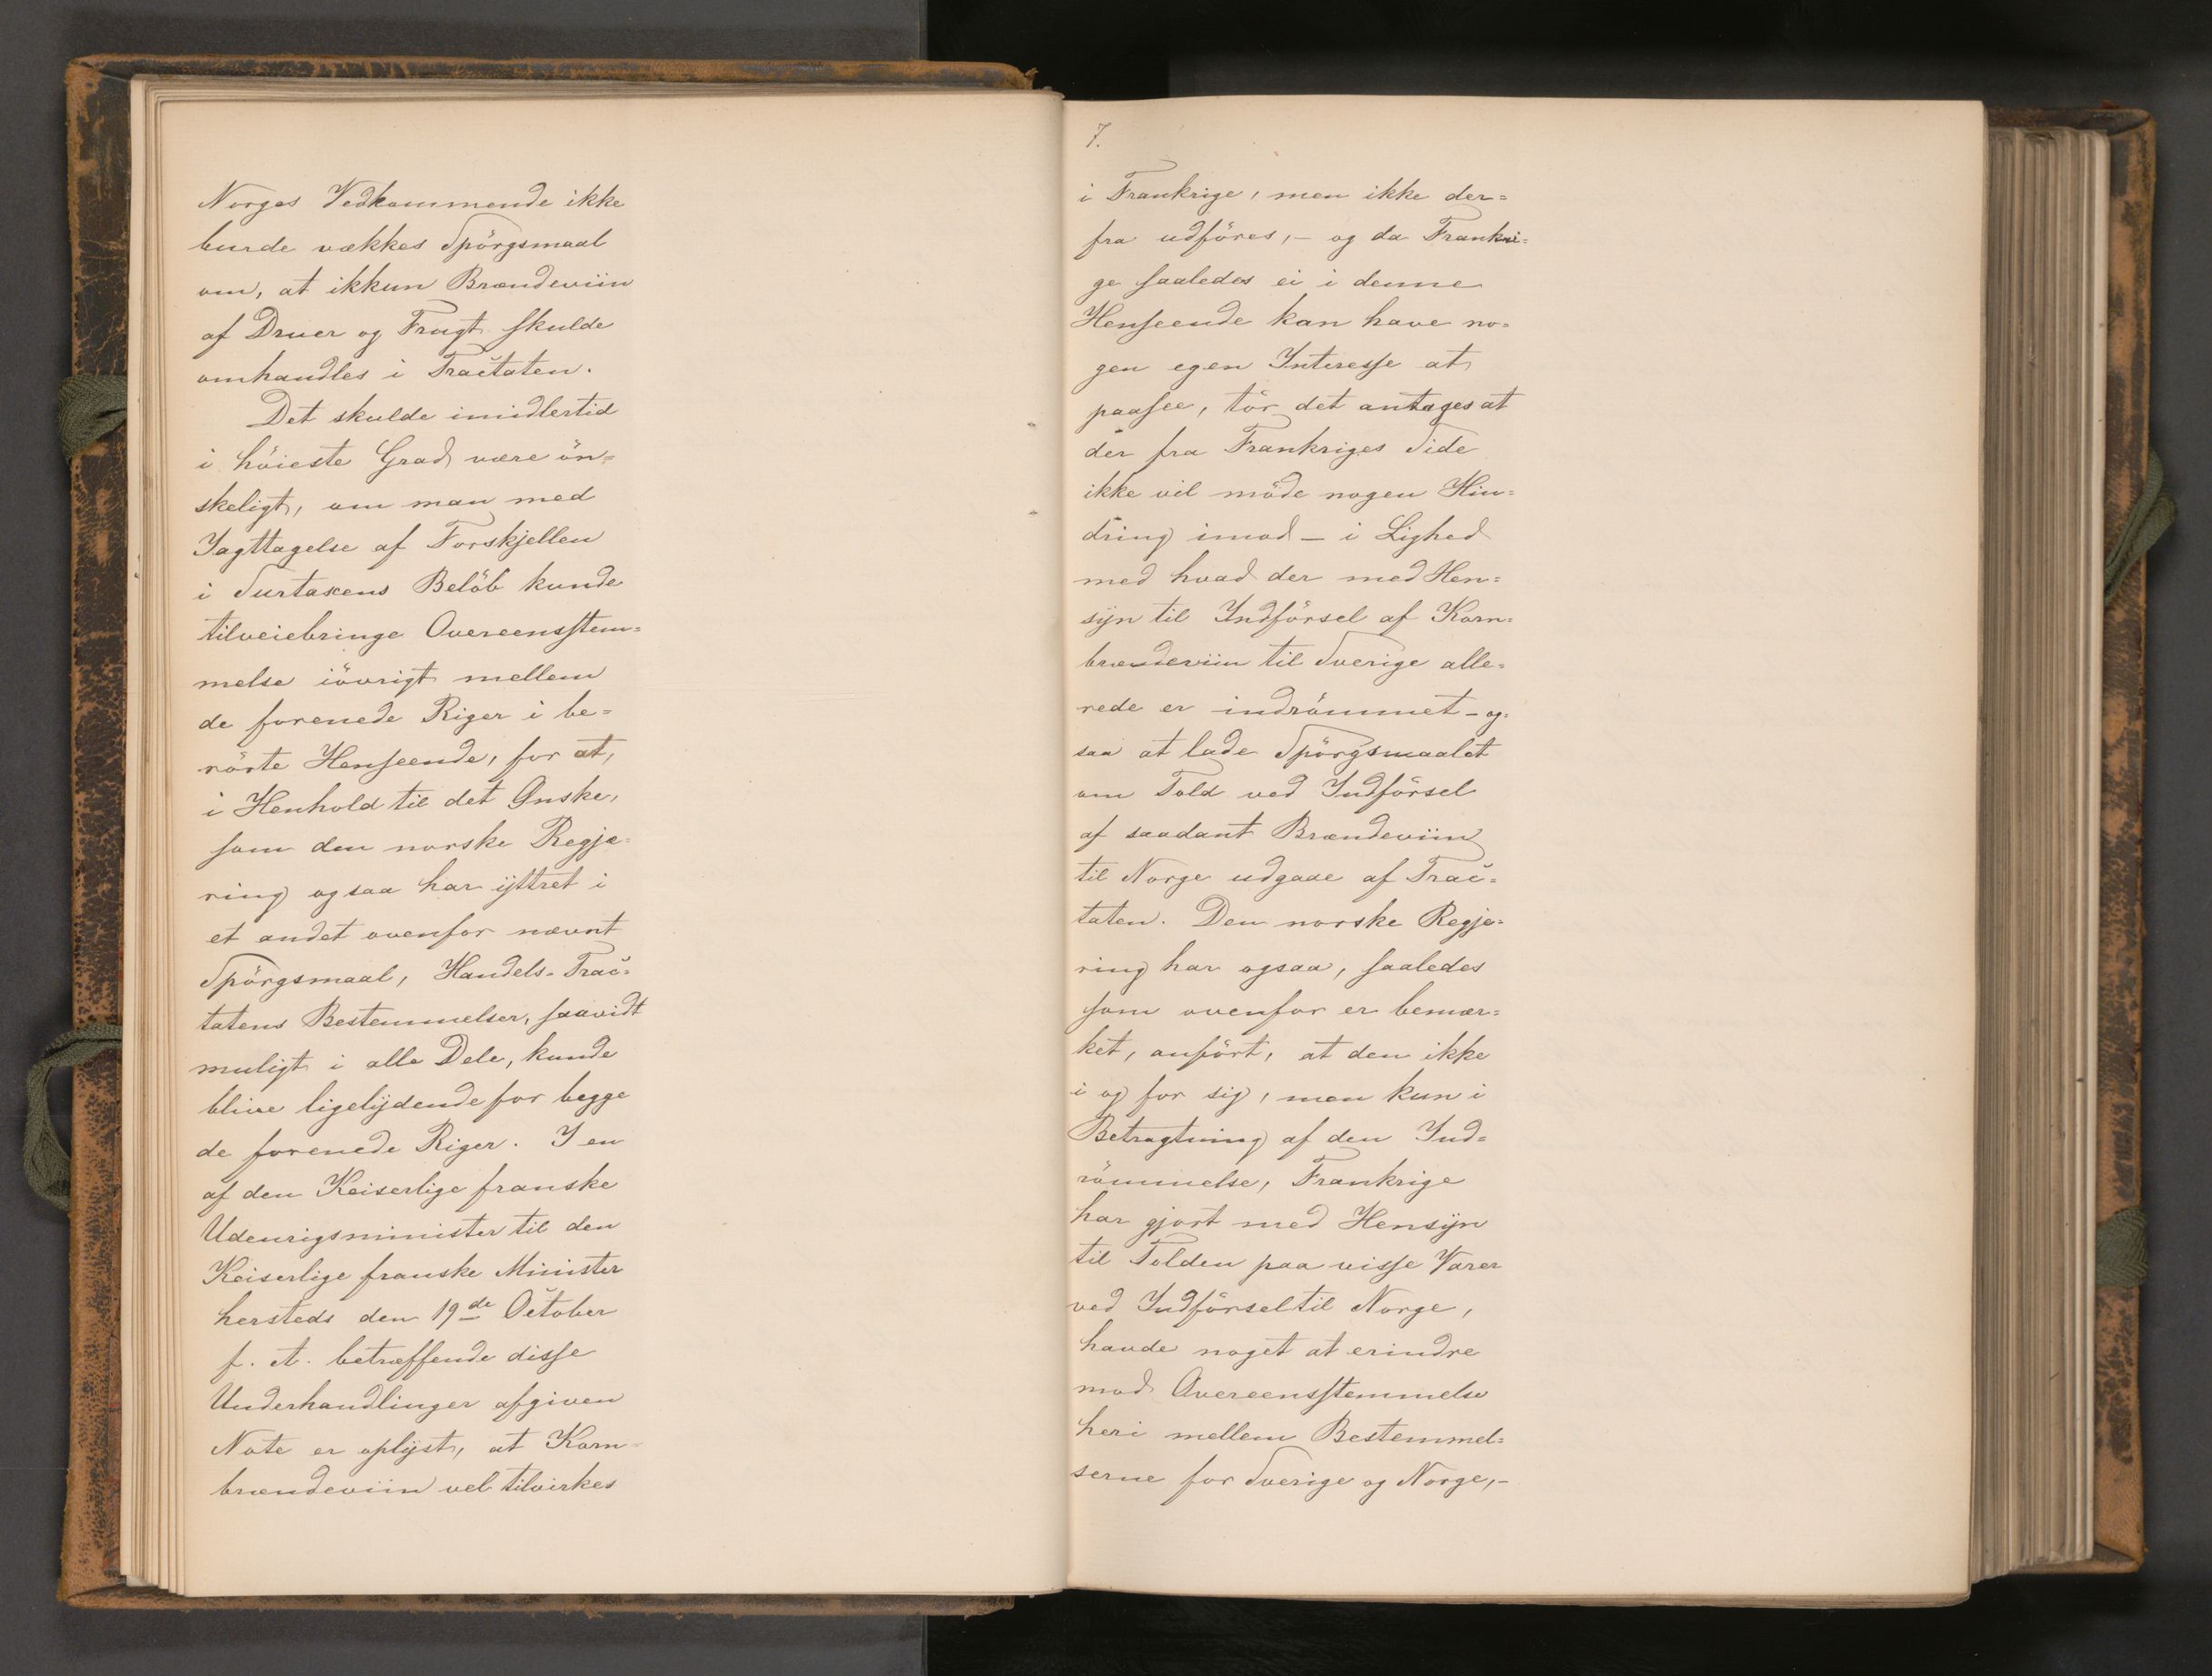 Norges Vedkommende ikke
burde vækkes Spörgsmaal
om, at ikkun Brændeviin
af Druer og Frugt skulde
omhandles i Tractaten.
Det skulde imidlertid
i höieste Grad være ön=
skeligt, om man med
Iagttagelse af Forskjellen
i Surtaxens Belöb kunde
tilveiebringe Overeensstem=
melse iövrigt mellem
de forenede Riger i be=
rörte Henseende, for at,
i Henhold til det Ønske,
som den norske Regje=
ring ogsaa har ÿttret i
et andet ovenfor nævnt
Spörgsmaal, Handels-Trac=
tatens Bestemmelser, saavidt
muligt i alle Dele, kunde
blive ligelÿdende for begge
de forenede Riger. I en
af den Keiserlige franske
Udenrigsminister til den
Keiserlige franske Minister
hersteds den 19de October
f. A. betræffende disse
Underhandlinger afgiven
Note er oplÿst, at Korn=
brændeviin vel tilvirkes
7.
i Frankrige, men ikke der=
fra udföres, - og da Frankri=
ge saaledes ei i denne
Henseende kan have no=
gen egen Interesse at
paasee, tör det antages at
der fra Frankriges Side
ikke vil möde nogen Hin=
dring imod - i Lighed
med hvad der med Hen=
sÿn til Indförsel af Korn=
brændeviin til Sverige alle=
rede er indrömmet - og=
saa at lade Spörgsmaalet
om Told ved Indförsel
af saadant Brændeviin
til Norge udgaae af Trac=
taten. Den norske Regje=
ring har ogsaa, saaledes
som ovenfor er bemær=
ket, anfört, at den ikke
i og for sig, men kun i
Betragtning af den Ind=
römmelse, Frankrige
har gjort med Hensÿn
til Tolden paa visse Varer
ved Indförsel til Norge,
havde noget at erindre
mod Overeensstemmelse
heri mellem Bestemmel=
serne for Sverige og Norge, -